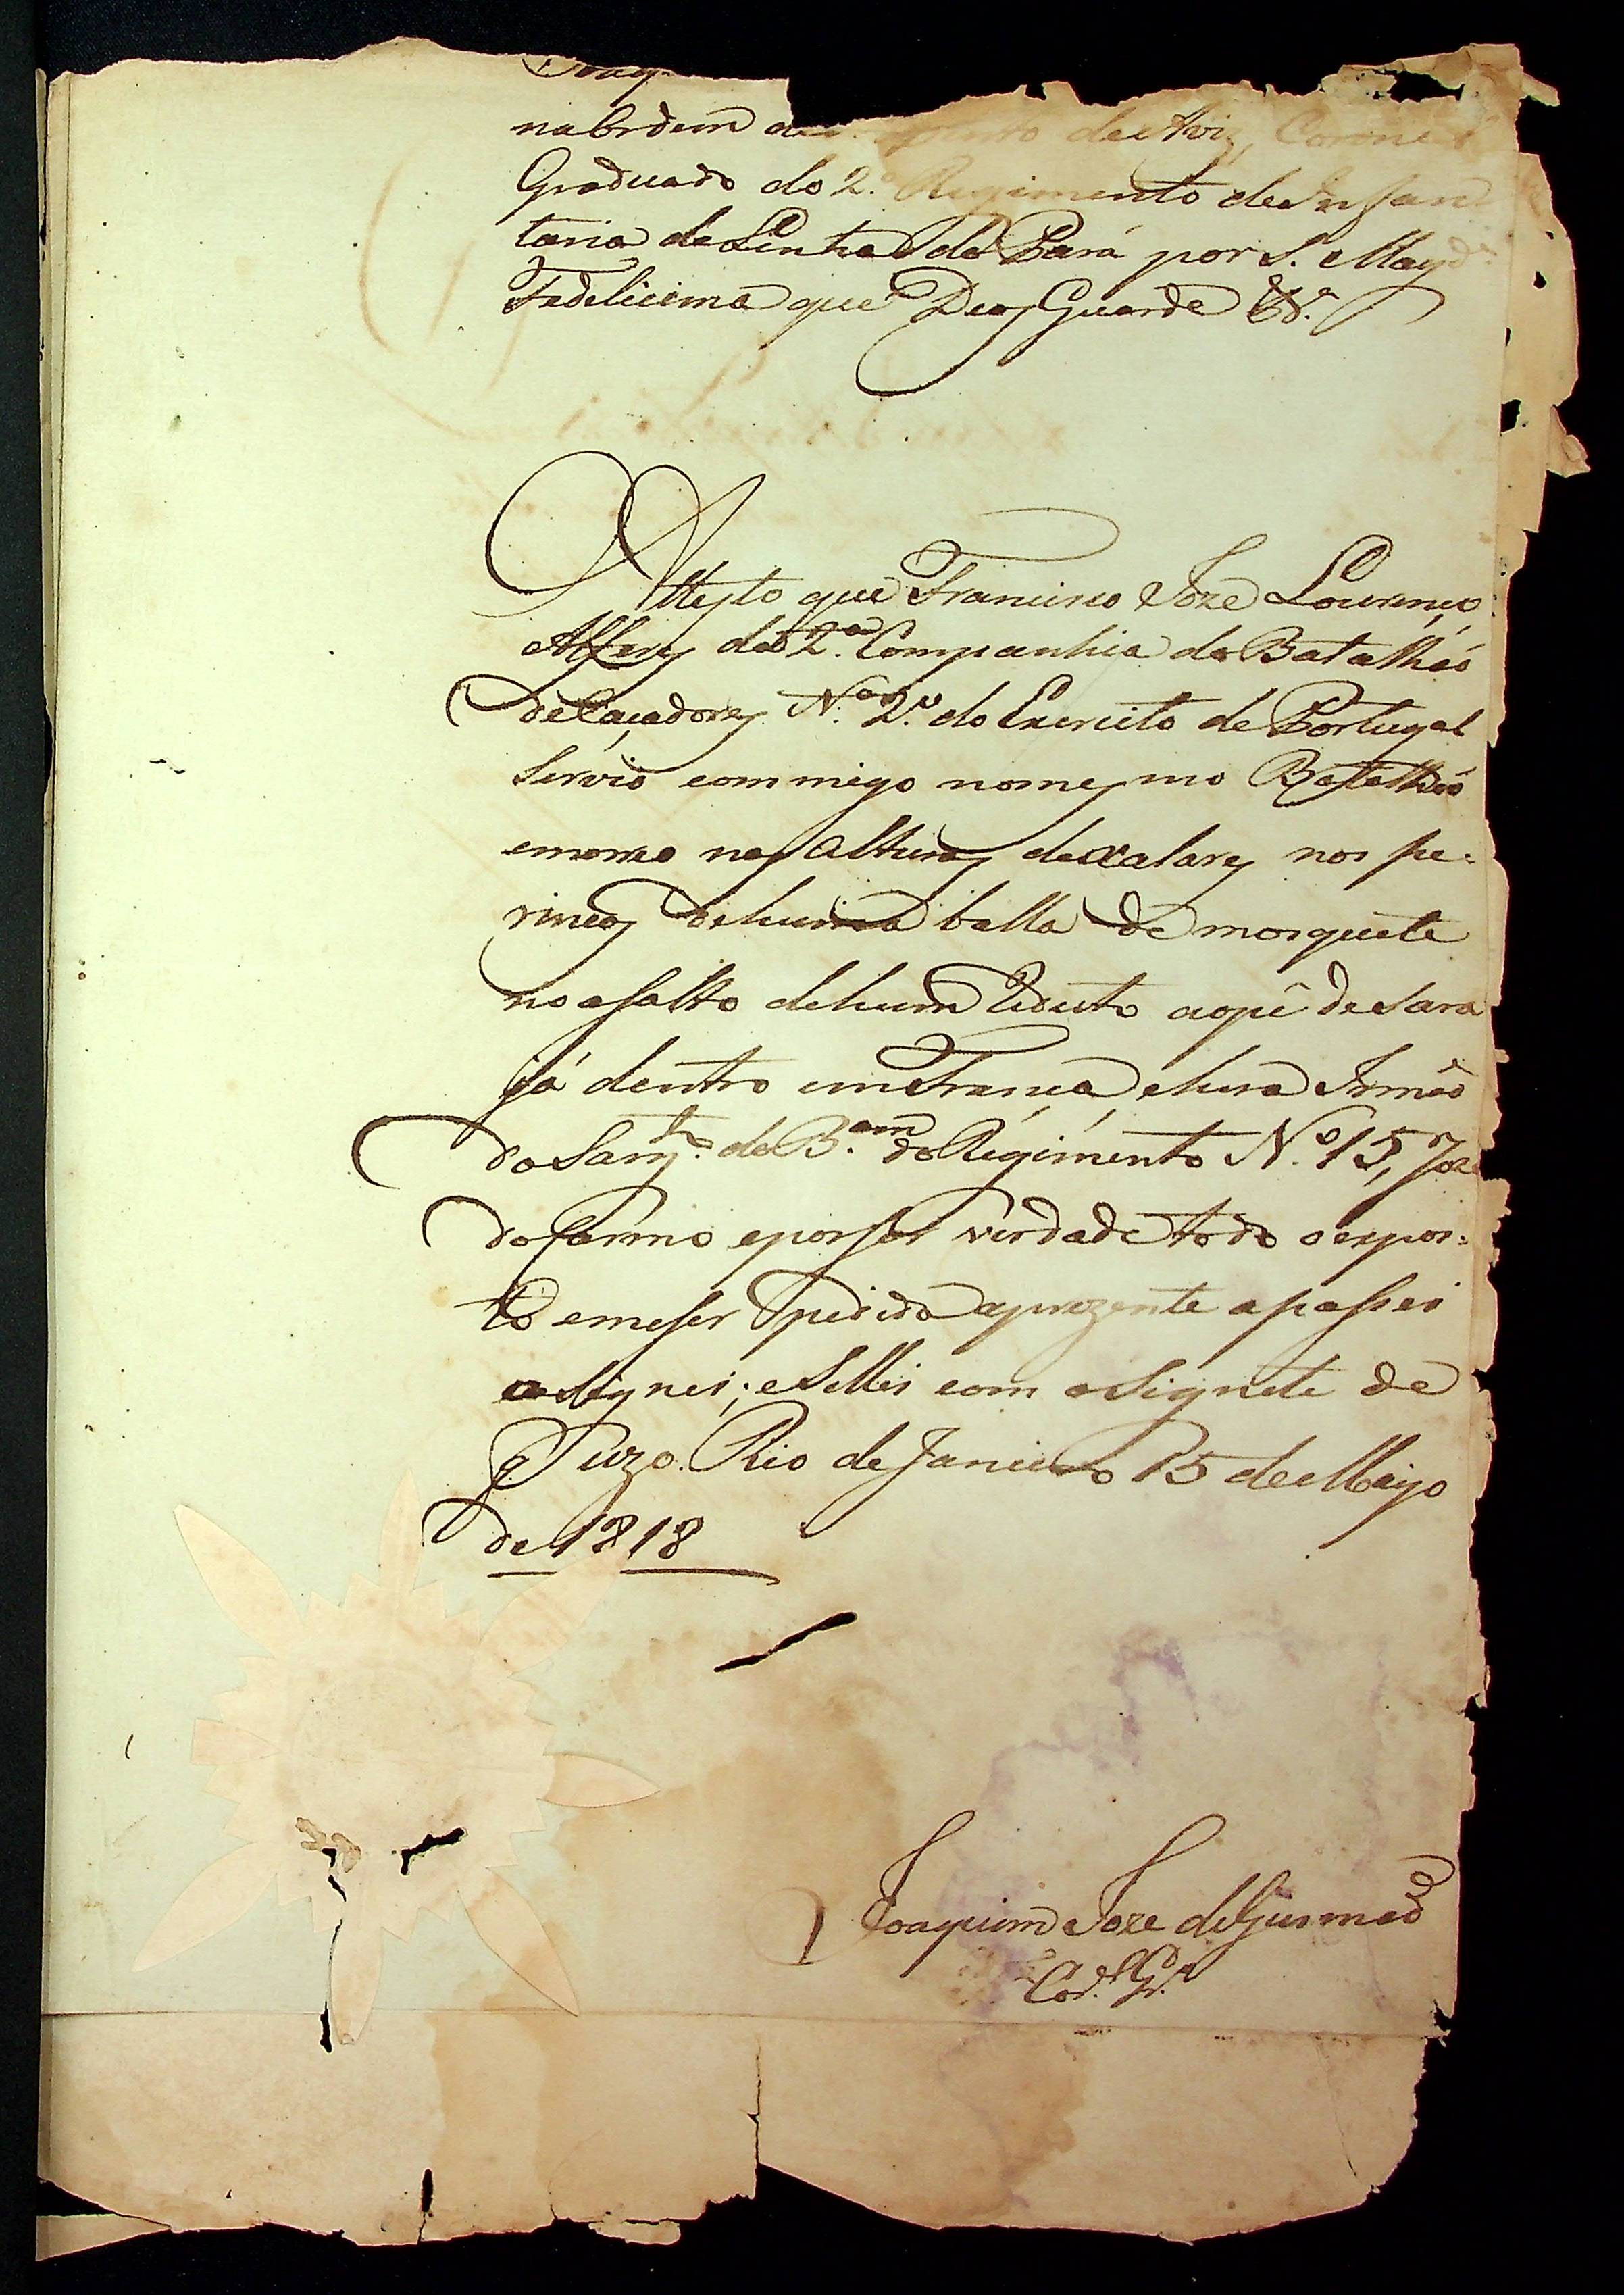 Joaq
na Ordem de Aviz, Corone
Graduado do 2.º Regimento de Infan
taria de Linha do Pará por S. Magde
Fedelicima que Deos Guarde &ª.
Attesto que Francisco Joze Lourenço
Alferes da 2.ª Companhia do Batalhaõ
de Caçadores N.º 2.º do Exercito de Portugal
Servio commigo no mesmo Batalhaõ
e morreo nas Alturas de nos pe-
rineos de huma balla de mosquete
no asalto de hum Reduto ao pê de Sara
já dentro em França e hera Irmaõ
do Sargto. de B.am do Regimento N.º 15, Joze
do Carmo e por ser verdade todo o expos-
to e me ser pedida a prezente a passei
a signei; e Sellei com o Signete de
q Uzo. Rio de Janeiro 15 de Mayo
de 1818
Joaquim Joze de Gusmaõ
Cor.el Gr.do